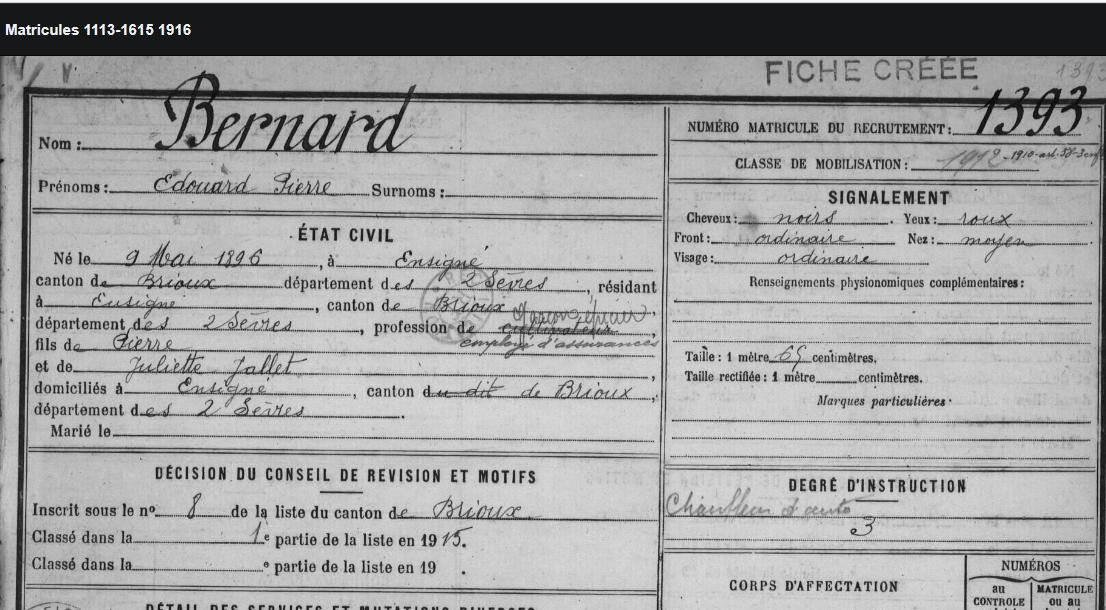 Matricules 1113-1615 1916
FICHE CRÉÉE
1393
Nom : Bernard
Prénoms : Edouard Pierre Surnoms :
NUMÉRO MATRICULE DU RECRUTEMENT : 1393
CLASSE DE MOBILISATION : 1912
SIGNALEMENT
Cheveux : noirs . Yeux : roux
Front : ordinaire Nez : moyen
Visage : ordinaire
Renseignements physionomiques complémentaires :
Taille : 1 mètre 65 centimètres.
Taille rectifiée : 1 mètre centimètres.
Marques particulières
ÉTAT CIVIL
Né le 9 Mai 1896 , à Ensigné
canton de Brioux département des 2 Sèvres , résidant
à Ensigné , canton de Brioux
département des 2 Sèvres , profession de cultivateur ,
fils de Pierre employé d'assurances
et de Juliette Jallet ,
domiciliés à Ensigné , canton du dit de Brioux ,
département des 2 Sèvres .
Marié le
DÉCISION DU CONSEIL DE REVISION ET MOTIFS
Inscrit sous le no 8 de la liste du canton de Brioux
Classé dans la 1e partie de la liste en 1915.
Classé dans la e partie de la liste en 19 .
DÉTAIL DES SERVICES ET MUTATIONS DIVERSES
DEGRÉ D'INSTRUCTION
Chauffeur d'auto
3
CORPS D'AFFECTATION
NUMÉROS
au CONTROLE
MATRICULE ou au